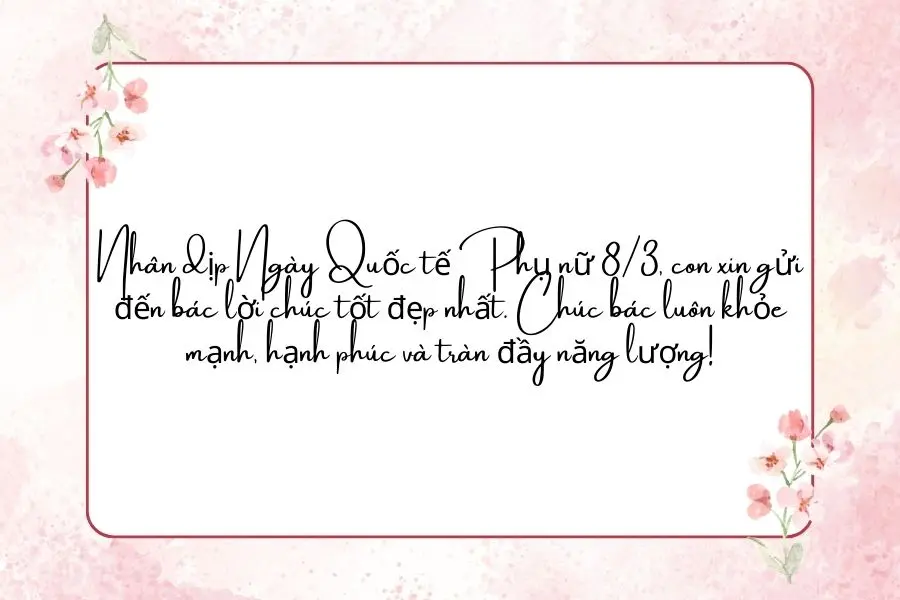 Nhân dịp Ngày Quốc tế Phụ nữ 8/3, con xin gửi
đến bác lời chúc tốt đẹp nhất. Chúc bác luôn khỏe
mạnh, hạnh phúc và tràn đầy năng lượng!